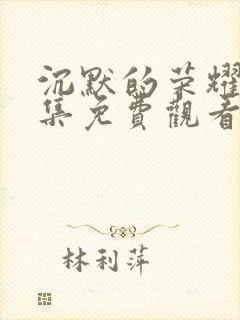 沉默的荣耀
集免費觀看
林利萍